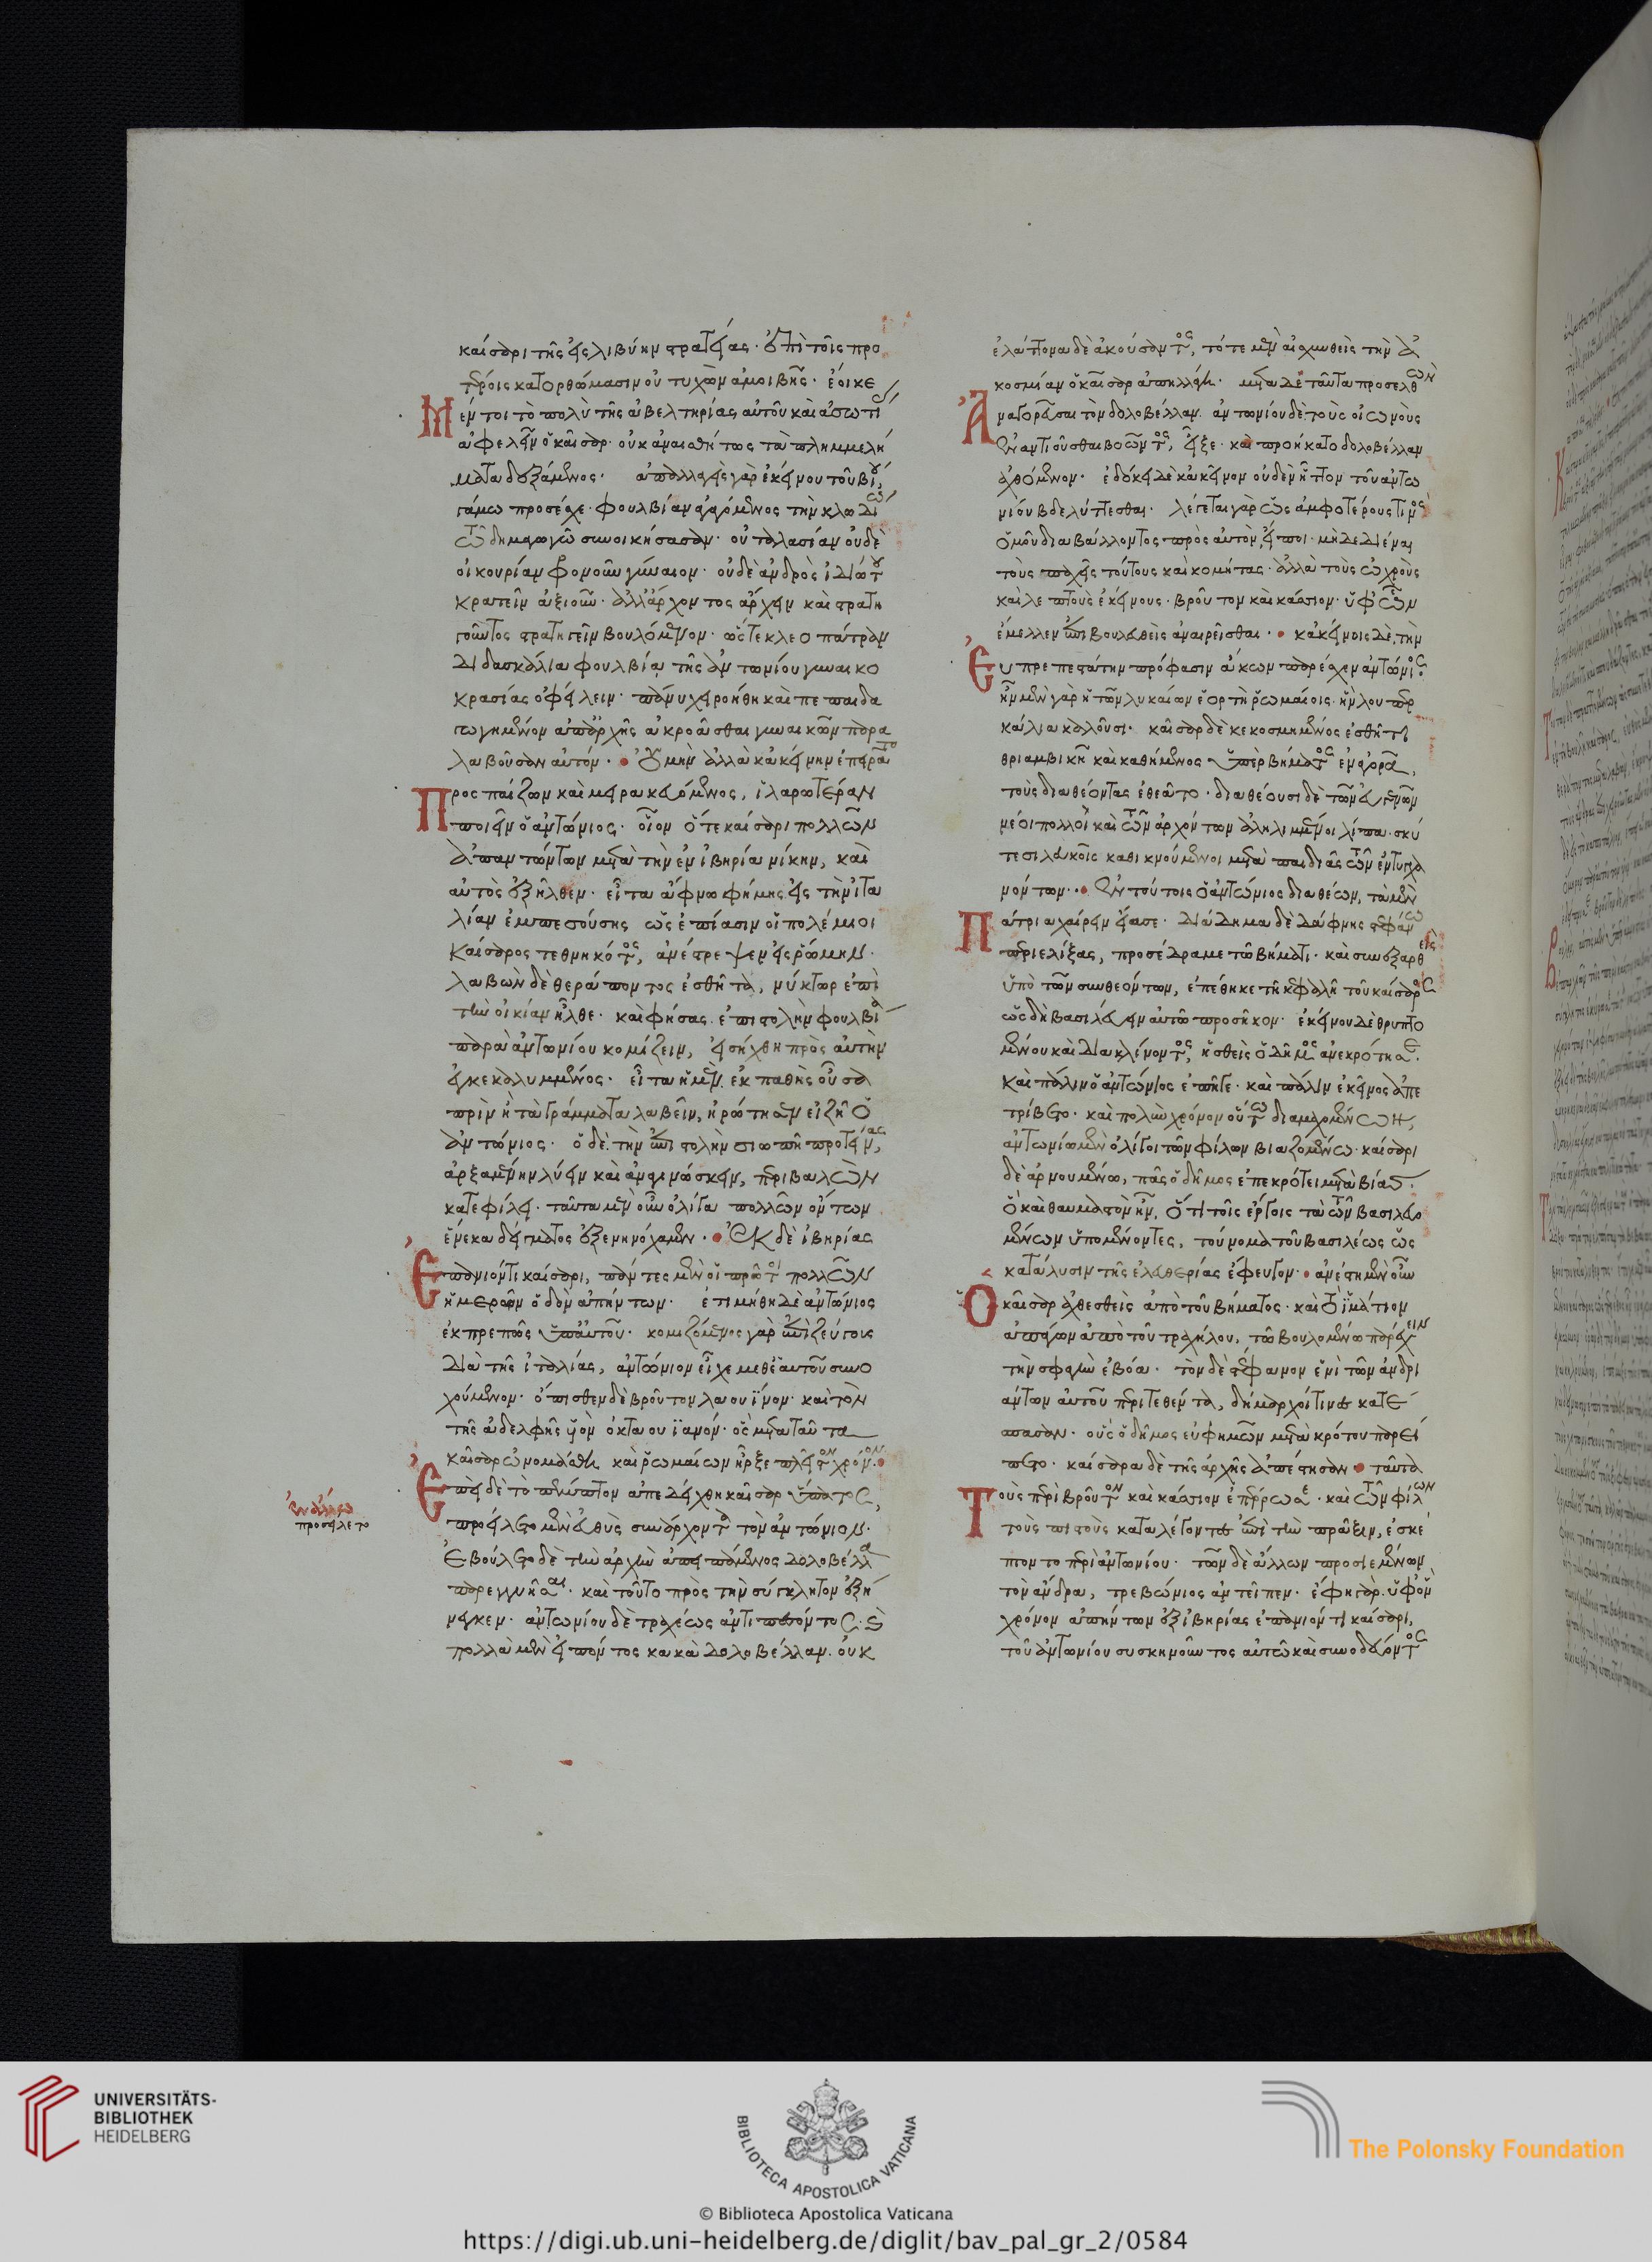 καίσαρι τῆς εἰς λιβύην στρατείας· ἐπὶ τοῖς προ
τέροις κατορθώμασιν οὐ τυχὼν ἀμοιβῆς· ἔοικε
Μέν τοι τὸ πολὺ τῆς ἀβελτηρίας αὐτοῦ καὶ ἀσωτί
ἀφελεῖν ὁ καῖσαρ· οὐκ ἀναισθήτως τὰ πλημμελή
ματα δεξάμενος· ἀπαλλαγεὶς γὰρ ἐκείνου τοῦ βίου,
γάμω προσέσχε· φουλβίαν ἀγόμενος τὴν κλωδίω
τῶ δημαγωγῶ συνοικήσασαν· οὐ ταλασίαν οὐδὲ
οἰκουρίαν φρονοῦν γύναιον· οὐδὲ ἀνδρὸς ἰδιώτου
κρατεῖν ἀξιοῦν· ἀλλ' ἄρχοντος ἄρχειν καὶ στρατη
γοῦντος στρατηγεῖν βουλόμενον· ὥστε κλεοπάτραν
διδασκάλια φουλβία τῆς ἀντωνίου γυναικο
κρασίας ὀφείλειν· πάνυ χειροήθη καὶ πεπαιδα
γωγημένον ἀπ' ἀρχῆς ἀκροᾶσθαι γυναικῶν παρα
λαβοῦσαν αὐτόν· Οὐ μὴν ἀλλὰ κἀκείνην ἐπειρᾶτο
Προσπαίζων καὶ μειρακιευόμενος, ἱλαρωτέραν
ποιεῖν ὁ ἀντώνιος· οἷον ὅτε καίσαρι πολλῶν
ἀπαντώντων μετὰ τὴν ἐν ἰβηρία νίκην, καὶ
αὐτὸς ἐξῆλθεν· εἶτα ἄφνω φήμης εἰς τὴν ἰτα
λίαν ἐμπεσούσης ὡς ἐπίασιν οἱ πολέμιοι
καίσαρος τεθνηκότος, ἀνέστρεψεν εἰς ῥώμην·
λαβὼν δὲ θεράποντος ἐσθῆτα, νύκτωρ ἐπὶ
τὴν οἰκίαν ἦλθε· καὶ φήσας ἐπιστολὴν φουλβία
παρὰ ἀντωνίου κομίζειν, εἰσήχθη πρὸς αὐτὴν
ἐγκεκαλυμμένος· εἶτα ἡ μὲν ἐκπαθὴς οὖσα
πρὶν ἢ τὰ γράμματα λαβεῖν, ἠρώτησεν εἰ ζῆ ὁ
ἀντώνιος· ὁ δὲ τὴν ἐπιστολὴν σιωπῆ προτείνας,
ἀρξαμένην λύειν καὶ ἀναγινώσκειν, περιβαλὼν
κατεφίλει· ταῦτα μὲν οὖν ὀλίγα πολλῶν ὄντων
ἕνεκα δείγματος ἐξενηνόχαμεν· Ἐκ δὲ ἰβηρίας
Ἐπανιόντι καίσαρι, πάντες μὲν οἱ πρῶτοι πολλῶν
ἡμερῶν ὁδὸν ἀπήντων· ἐτιμήθη δὲ ἀντώνιος
ἐκπρεπῶς ὑπ' αὐτοῦ· κομιζόμενος γὰρ ἐπὶ ζεύγους
διὰ τῆς ἰταλίας, ἀντώνιον εἶχε μεθ' ἑαυτοῦ συνο
χούμενον· ὄπισθεν δὲ βροῦτον λαουίνον· καὶ τὸν
τῆς ἀδελφῆς υἱὸν ὀκταουϊανόν· ὃς μετὰ ταῦτα
καῖσαρ ὠνομάσθη καὶ ῥωμαίων ἦρξε πλεῖστον χρόνον·
Ἐπεὶ δὲ τὸ πέμπτον ἀπεδείχθη καῖσαρ ὕπατος,
προσείλετο μὲν εὐθὺς συνάρχοντα τὸν ἀντώνιον·
Ἐβούλετο δὲ τὴν ἀρχὴν ἀπειπάμενος δολοβέλλα
παρεγγυῆσαι· καὶ τοῦτο πρὸς τὴν σύγκλητον ἐξή
νεγκεν· ἀντωνίου δὲ τραχέως ἀντιπεσόντος· καὶ
πολλὰ μὲν εἰπόντος κακὰ δολοβέλλαν· οὐκ
προσείλετο
ἐλάττονα δὲ ἀκούσαντος, τότε μὲν αἰσχυνθεὶς τὴν ἀ
κοσμίαν ὁ καῖσαρ ἀπηλλάγη· μετὰ δὲ ταῦτα προσελθὼν
Ἀναγορεῦσαι τὸν δολοβέλλαν· ἀντωνίου δὲ τοὺς οἰωνοὺς
ἐναντιοῦσθαι βοῶντος, εἶξε· καὶ προήκατο δολοβέλλαν
ἀχθόμενον· ἐδόκει δὲ κἀκεῖνον οὐδὲν ἧττον τοῦ ἀντω
νίου βδελύττεσθαι· λέγεται γὰρ ὡς ἀμφοτέρους τινὸς
ὁμοῦ διαβάλλοντος πρὸς αὐτὸν, εἴποι· μὴ δεδιέναι
τοὺς παχεῖς τούτους καὶ κομήτας· ἀλλὰ τοὺς ὠχροὺς
καὶ λεπτοὺς ἐκείνους· βροῦτον καὶ κάσσιον· ὑφ' ὧν
ἔμελλεν ἐπιβουλευθεὶς ἀναιρεῖσθαι· κἀκείνοις δὲ, τὴν
Εὐπρεπεστάτην πρόφασιν ἄκων παρέσχεν ἀντώνιος
ἦν μὲν γὰρ ἡ τῶν λυκαίων ἑορτὴ ῥωμαίοις· ἣν λουπερ
κάλια καλοῦσι· καῖσαρ δὲ κεκοσμημένος ἐσθῆτι
θριαμβικῆ καὶ καθήμενος ὑπὲρ βήματος ἐν ἀγορᾶ,
τοὺς διαθέοντας ἐθεᾶτο· διαθέουσι δὲ τῶν εὐγενῶν
νέοι πολλοὶ καὶ τῶν ἀρχόντων ἀληλιμμένοι λίπα· σκύ
τεσι λασίοις καθικνούμενοι μετὰ παιδιᾶς τῶν ἐντυγχα
νόντων· Ἐν τούτοις ὁ ἀντώνιος διαθέων, τὰ μὲν
Πάτρια χαίρειν εἴασε· διάδημα δὲ δάφνης στεφάνω
περιελίξας, προσέδραμε τῶ βήματι· καὶ συνεξαρθεὶς
ὑπὸ τῶν συνθεόντων, ἐπέθηκε τῆ κεφαλῆ τοῦ καίσαρος
ὡς δὴ βασιλεύειν αὐτῶ προσῆκον· ἐκείνου δὲ θρυπτο
μένου καὶ διακλίνοντος, ἡσθεὶς ὁ δῆμος ἀνεκρότησε·
καὶ πάλιν ὁ ἀντώνιος ἐπῆγε· καὶ πάλιν ἐκεῖνος ἀπε
τρίβετο· καὶ πολὺν χρόνον οὕτω διαμαχομένων,
ἀντωνίω μὲν ὀλίγοι τῶν φίλων βιαζομένω· καίσαρι
δὲ ἀρνουμένω, πᾶς ὁ δῆμος ἐπεκρότει μετὰ βίας·
ὃ καὶ θαυμαστὸν ἦν, ὅτι τοῖς ἔργοις τὰ τῶν βασιλευο
μένων ὑπομένοντες, τοὔνομα τοῦ βασιλέως ὡς
κατάλυσιν τῆς ἐλευθερίας ἔφευγον· ἀνέστη μὲν οὖν
Ὁ καῖσαρ ἀχθεσθεὶς ἀπὸ τοῦ βήματος· καὶ τὸ ἱμάτιον
ἀπάγων ἀπὸ τοῦ τραχήλου, τῶ βουλομένω παρέχειν
τὴν σφαγὴν ἐβόα· τὸν δὲ στέφανον ἑνὶ τῶν ἀνδρι
άντων αὐτοῦ περιτεθέντα, δήμαρχοί τινες κατέ
σπασαν· οὓς ὁ δῆμος εὐφημῶν μετὰ κρότου παρεί
πετο· καίσαρ δὲ τῆς ἀρχῆς ἀπέστησεν· ταῦτα
Τοὺς περὶ βροῦτον καὶ κάσσιον ἐπέρρωσε· καὶ τῶν φίλων
τοὺς πιστοὺς καταλέγοντες ἐπὶ τὴν πρᾶξιν, ἐσκέ
πτοντο περὶ ἀντωνίου· τῶν δὲ ἄλλων προσιεμένων
τὸν ἄνδρα, τρεβώνιος ἀντεῖπεν· ἔφη γὰρ ὑφ' ὃν
χρόνον ἀπήντων ἐξ ἰβηρίας ἐπανιόντι καίσαρι,
τοῦ ἀντωνίου συσκηνοῦντος αὐτῶ καὶ συνοδεύοντος
UNIVERSITÄTS-
BIBLIOTHEK
HEIDELBERG
BIBLIOTECA APOSTOLICA VATICANA
The Polonsky Foundation
© Biblioteca Apostolica Vaticana
https://digi.ub.uni-heidelberg.de/diglit/bav_pal_gr_2/0584